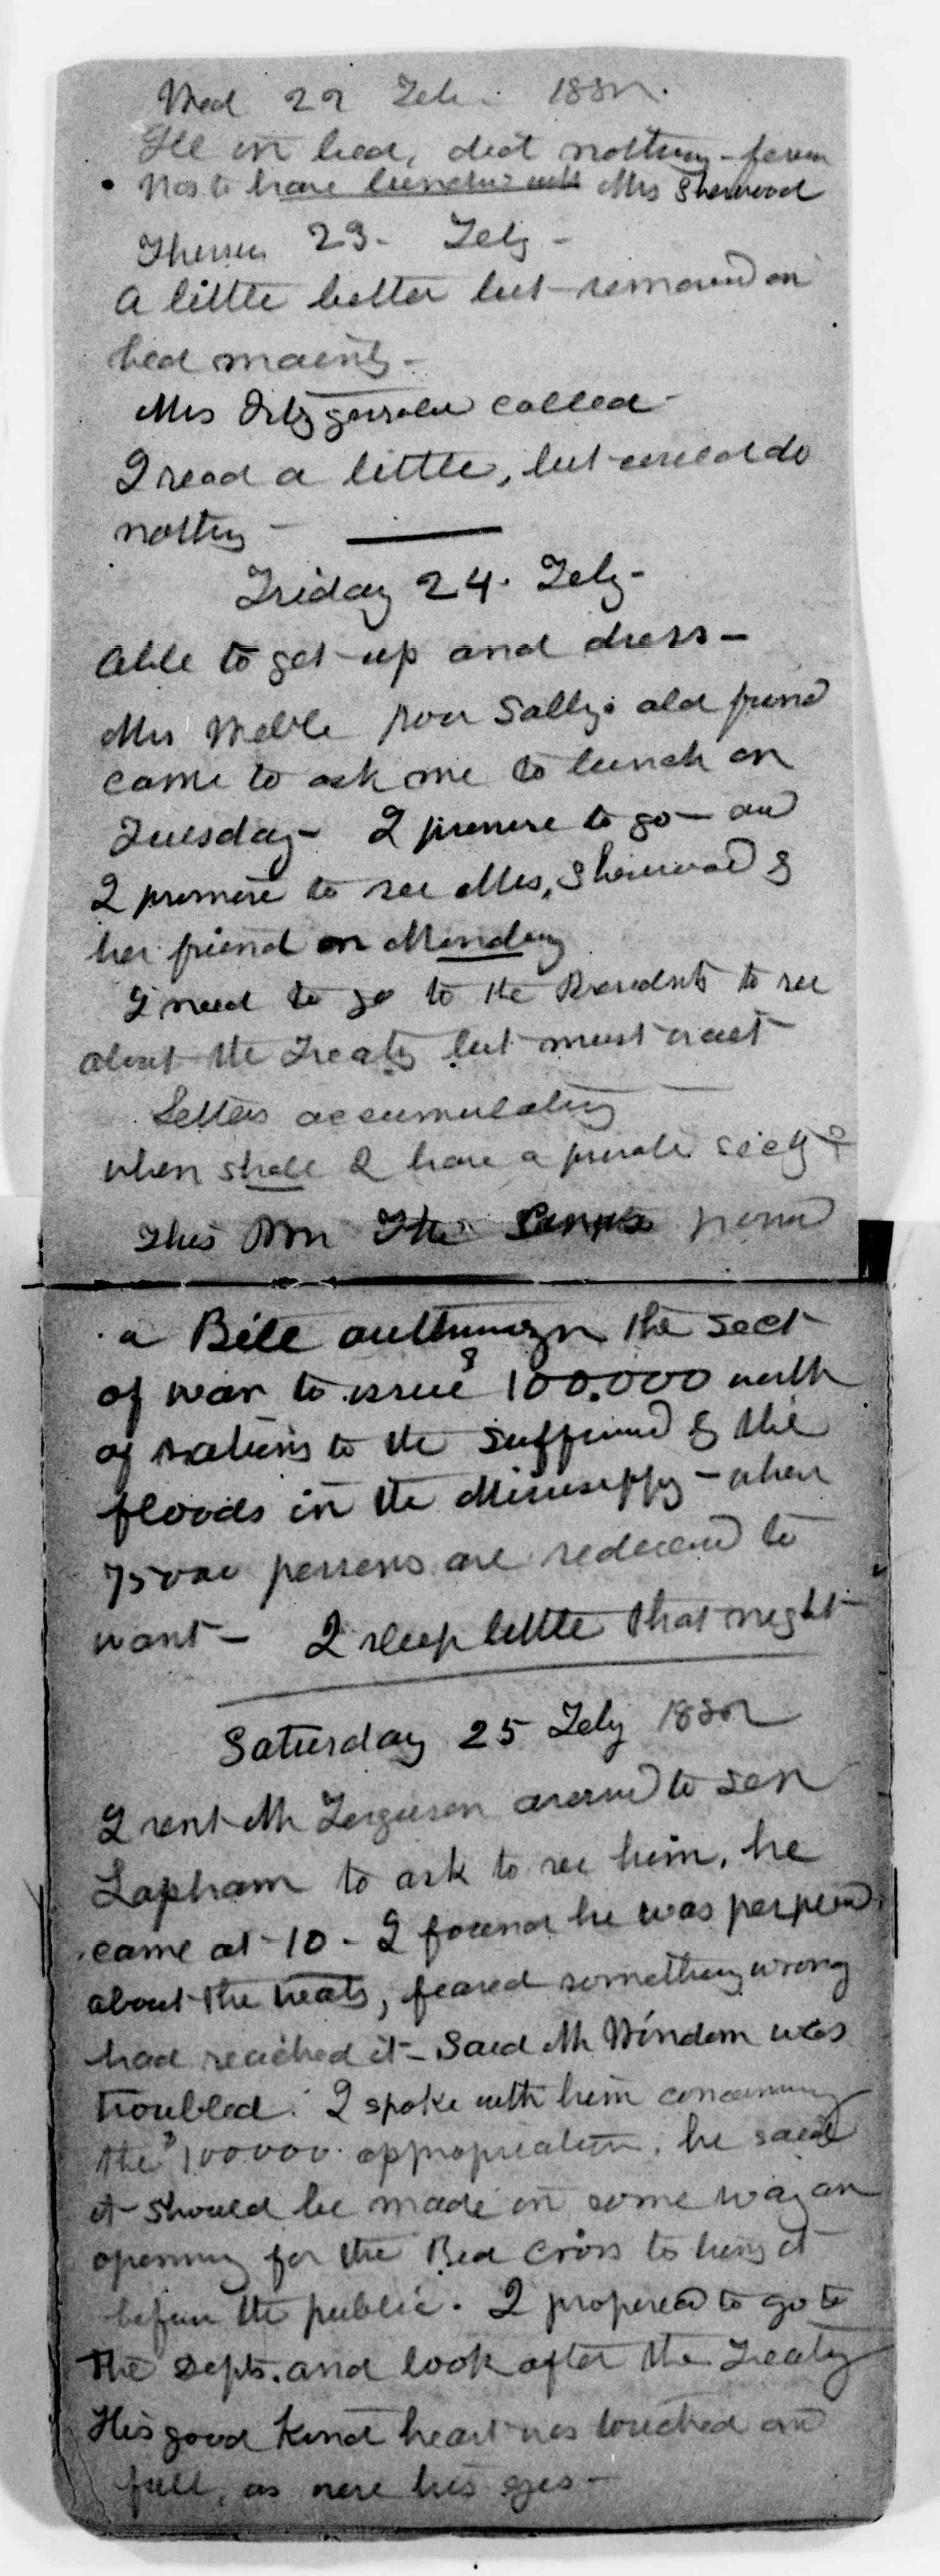 Wed 22 Feb. 1882.
Ill in bed, did nothing - fever
Was to have lunched with Mrs Sherwood
Thurs 23. Feby -
A little better but remained in
bed mainly -
Mrs Fitzgerald called -
I read a little, but could do
nothing -
Friday 24. Feby -
Able to get up and dress -
Mrs Noble poor Sallys old friend
came to ask me to lunch on
Tuesday - I promise to go - and
I promise to see Mrs. Sherwood &
her friend on Monday
I need to go to the Presidents to see
about the Treaty but must wait
Letters accumulating
when shall I have a private secty?
This Mn the passed
a Bill authorizing the Sect
of war to issue $100.000 worth
of rations to the sufferers of the
floods in the Mississippy - where
75000 persons are reduced to
want - I sleep little that night
Saturday 25 Feby 1882
I sent Mr Ferguson around to Sen
Lapham to ask to see him, he
came at 10 - I found he was perplexed
about the treaty, feared something wrong
had reached it - Said Mr Windom was
troubled. I spoke with him concerning
the $100000. appropriation, he said
it should be made in some way an
opening for the Red Cross to bring it
before the public. I proposed to go to
the Depts. and look after the Treaty
His good kind heart was touched and
full, as were his eyes -